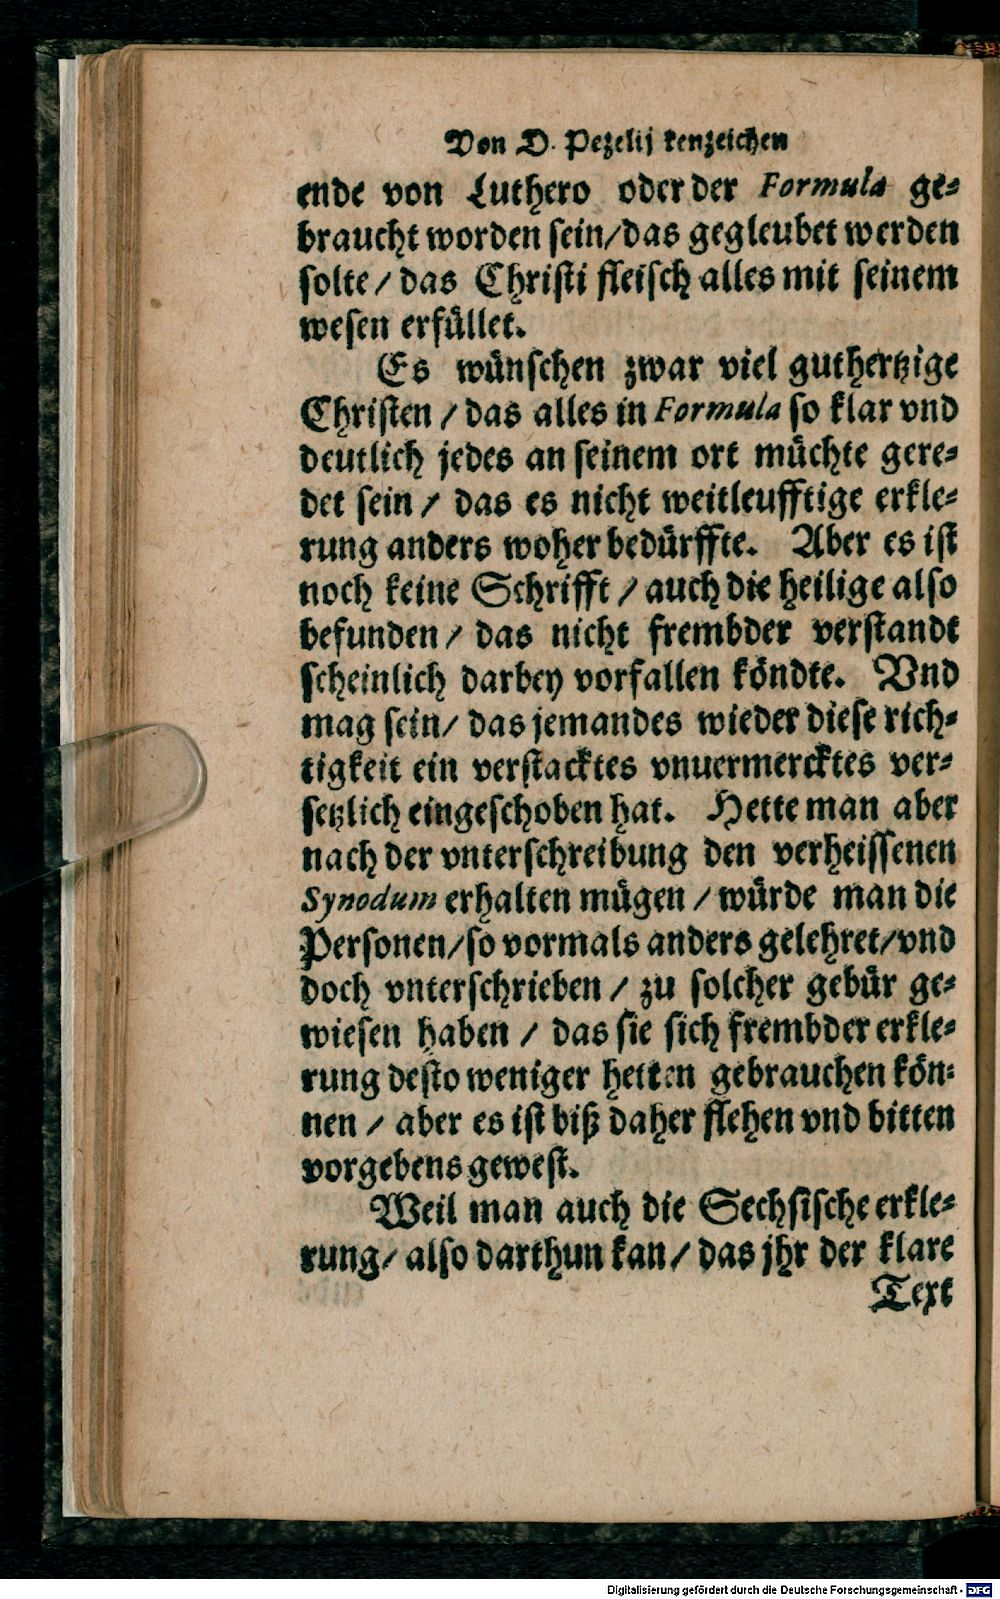 Von D. Pezelij kenzeichen
ende von Luthero oder der Formula ge⸗
braucht worden sein/das gegleubet werden
solte/ das Christi fleisch alles mit seinem
wesen erfüllet.
Es wünschen zwar viel guthertzige
Christen / das alles in Formula so klar vnd
deutlich jedes an seinem ort müchte gere⸗
det sein / das es nicht weitleufftige erkle⸗
rung anders woher bedürffte. Aber es ist
noch keine Schrifft / auch die heilige also
befunden/ das nicht frembder verstandt
scheinlich darbey vorfallen köndte. Vnd
mag sein/ das jemandes wieder diese rich⸗
tigkeit ein verstacktes vnuermercktes ver⸗
setzlich eingeschoben hat. Hette man aber
nach der vnterschreibung den verheissenen
Synodum erhalten mügen / würde man die
Personen/so vormals anders gelehret/vnd
doch vnterschrieben / zu solcher gebür ge⸗
wiesen haben / das sie sich frembder erkle⸗
rung desto weniger hetten gebrauchen kön⸗
nen / aber es ist biß daher flehen vnd bitten
vorgebens gewest.
Weil man auch die Sechsische erkle⸗
rung/ also darthun kan/ das jhr der klare
Text
Digitalisierung gefördert durch die Deutsche Forschungsgemeinschaft - DFG